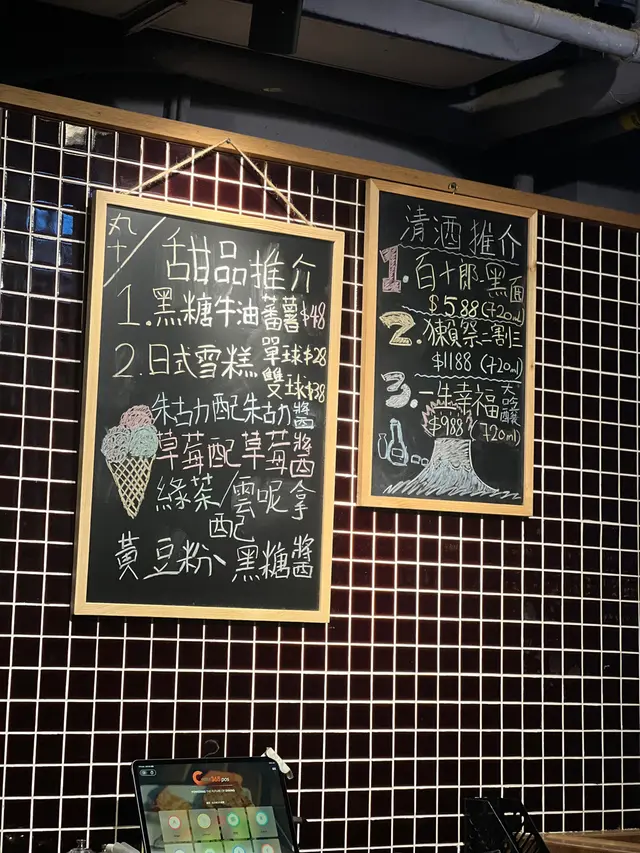 丸十
甜品推介
1.黑糖牛油蕃薯$48
2.日式雪糕 單球$28
雙球$38
朱古力配朱古力醬
草莓配草莓醬
綠茶/雲呢拿
配
黃豆粉、黑糖醬
清酒推介
1.百十郎-黑面
$588(720ml)
2.獺祭二割三
$1188(720ml)
3.一生幸福大吟釀
$988(720ml)
365pos